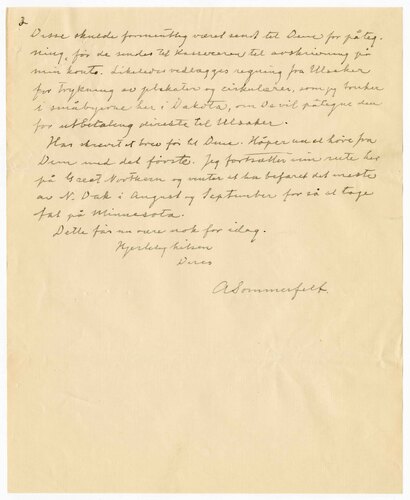 2
Disse skulde formentlig været sendt til Dem for påteg-
ning, før de sendes til kassereren til avskrivning på
min konto. Likeledes vedlægges regning fra Ulsaker
for trykning av plakater og cirkulærer, som jeg bruker
i småbyerne her i Dakota, om De vil påtegne den
for utbetaling direkte til Ulsaker.
Har skrevet et brev før til Dem. Håper nu at høre fra
Dem med det første. Jeg fortsætter min rute her
på Great Northern og venter at ha befaret det meste
av N. Dak i August og September for så at tage
fat på Minnesota.
Dette får nu være nok for idag.
Hjertelig hilsen
Deres
ASommerfelt.